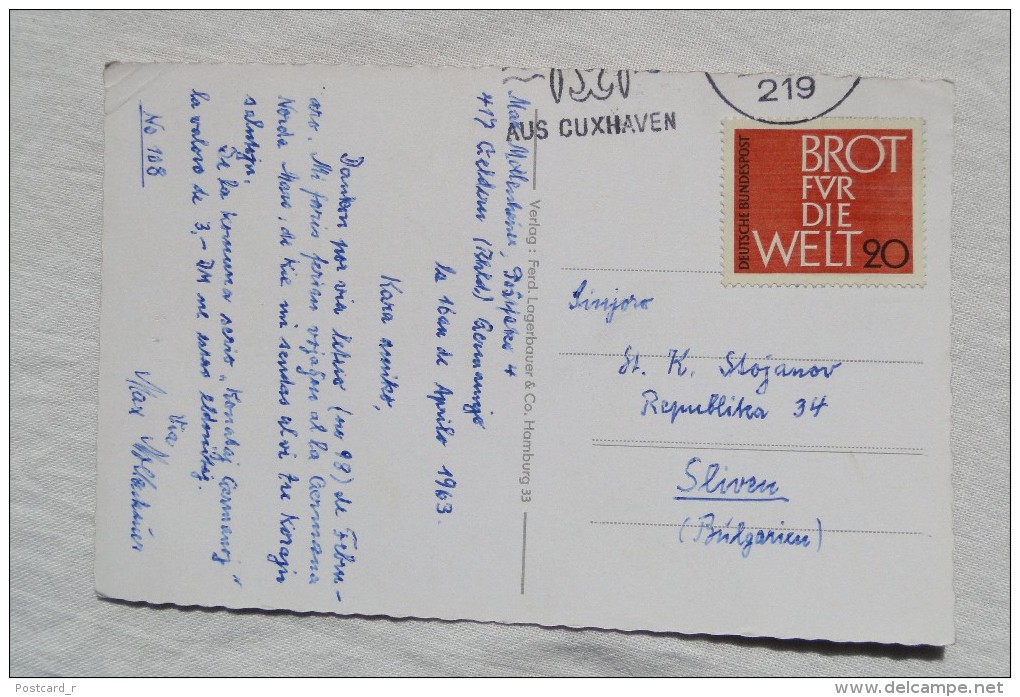 Max Mollenhauer, Postfako 4
417 Geldern (Rhld) Germanujo
la 16an de Aprilo 1963.
Kara amiko,
Dankon por via letero (no 98) de Febru-
aro. Mi faris ferian vojaĝon al la Germana
Norda Maro, de kie mi sendas al vi tre korajn
salutojn.
De la komuna serio „Konataj Germanoj"
la valoro de 3,- DM ne estas eldonitaj.
Via
Max Mollenhauer
No 108
Verlag: Ferd. Lagerbauer & Co. Hamburg 33
AUS CUXHAVEN
219
DEUTSCHE BUNDESPOST
BROT
FÜR
DIE
WELT 20
Sinjoro
St. K. Stojanov
Republika 34
Sliven
(Bulgarien)
Postcard_r
http://www.delcampe.net